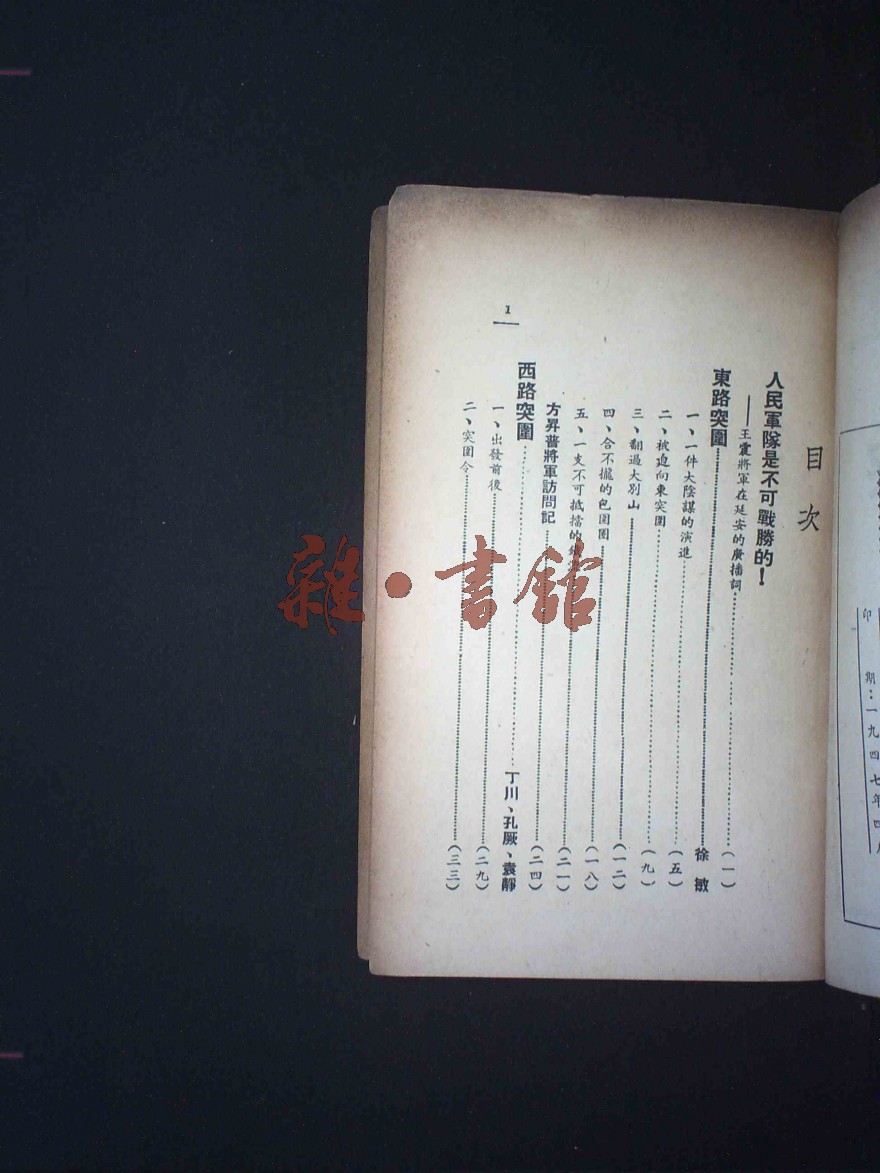 目次
人民軍隊是不可戰勝的！
——王震將軍在延安的廣播詞……(一)
東路突圍……徐敏
一、一件大陰謀的演進……(五)
二、被迫向東突圍……(九)
三、翻過大別山……(一二)
四、合不攏的包圍圈……(一八)
五、一支不可抵擋的……(二一)
方昇普將軍訪問記……(二四)
西路突圍……丁川、孔厥、袁靜
一、出發前後……(二九)
二、突圍令……(三三)
1
印
期：一九四七年四月
雜·書館